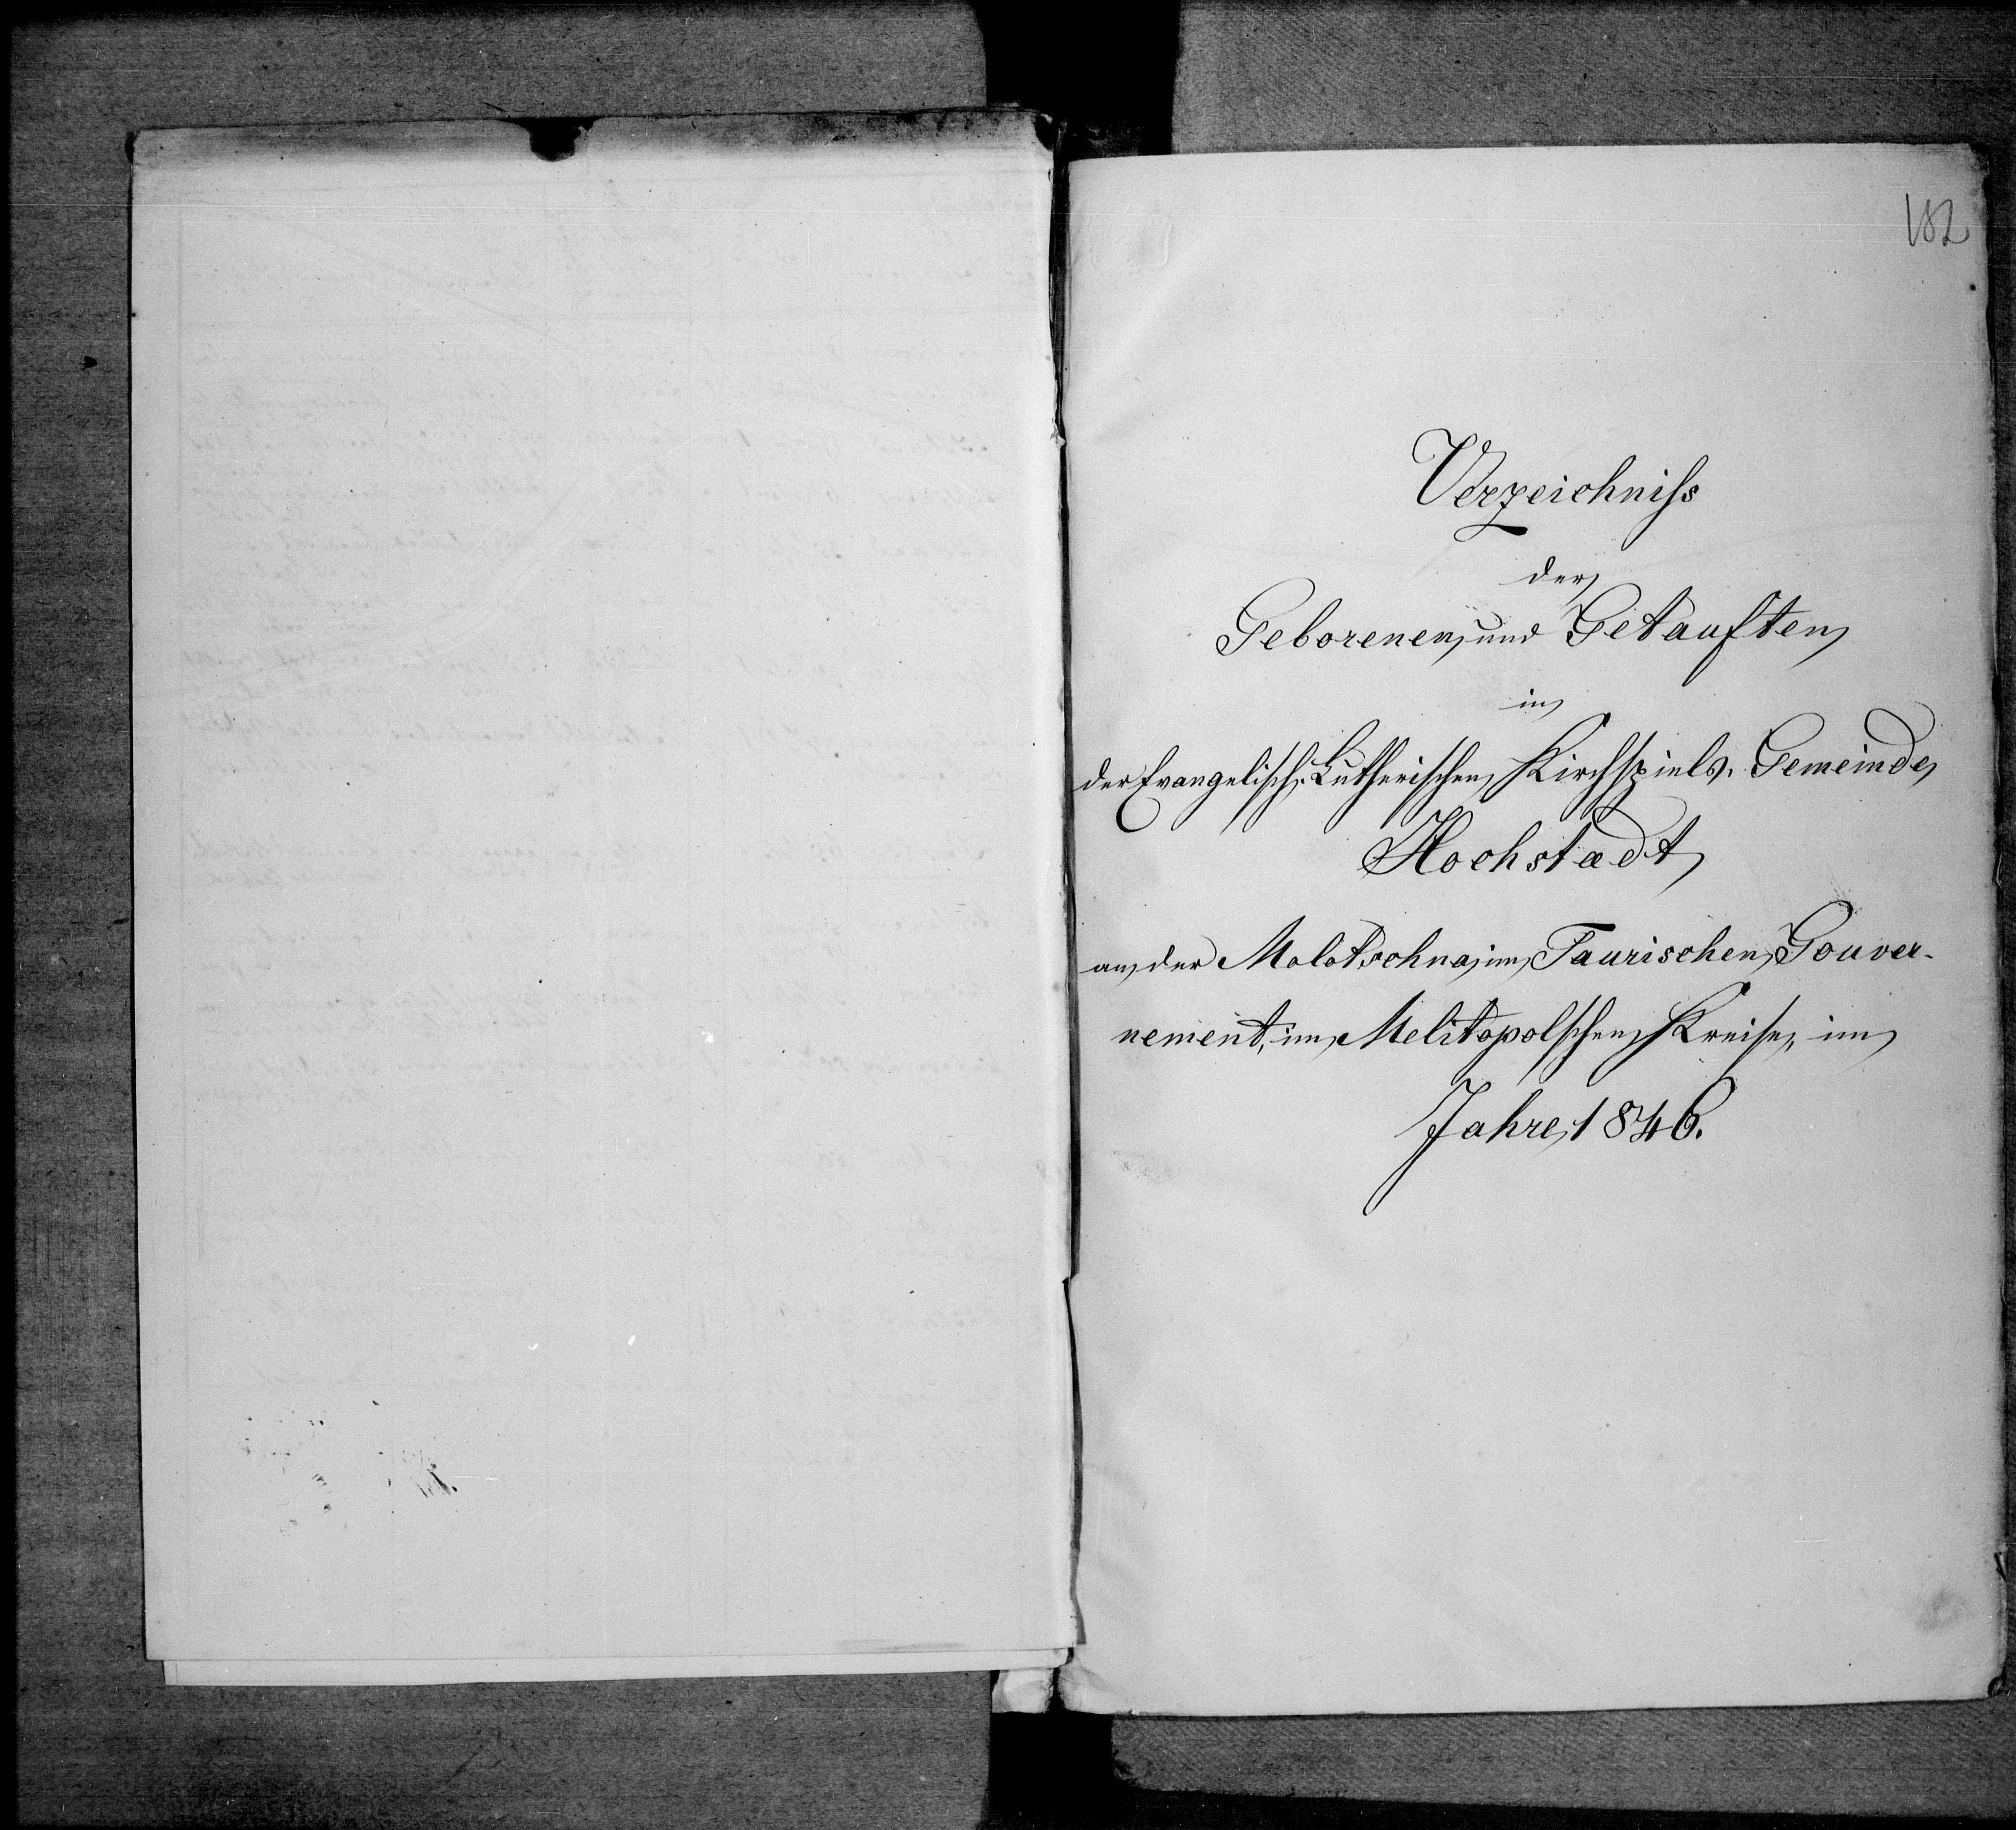 182
Verzeichniss
der
Geborenen und Getauften
in
der Evangelisch-Lutherischen Kirchspiels-Gemeinde
Hochstædt
an der Molotschna, im Taurischen Gouver-
nement, im Melitopolschen Kreise, im
Jahre 1846.